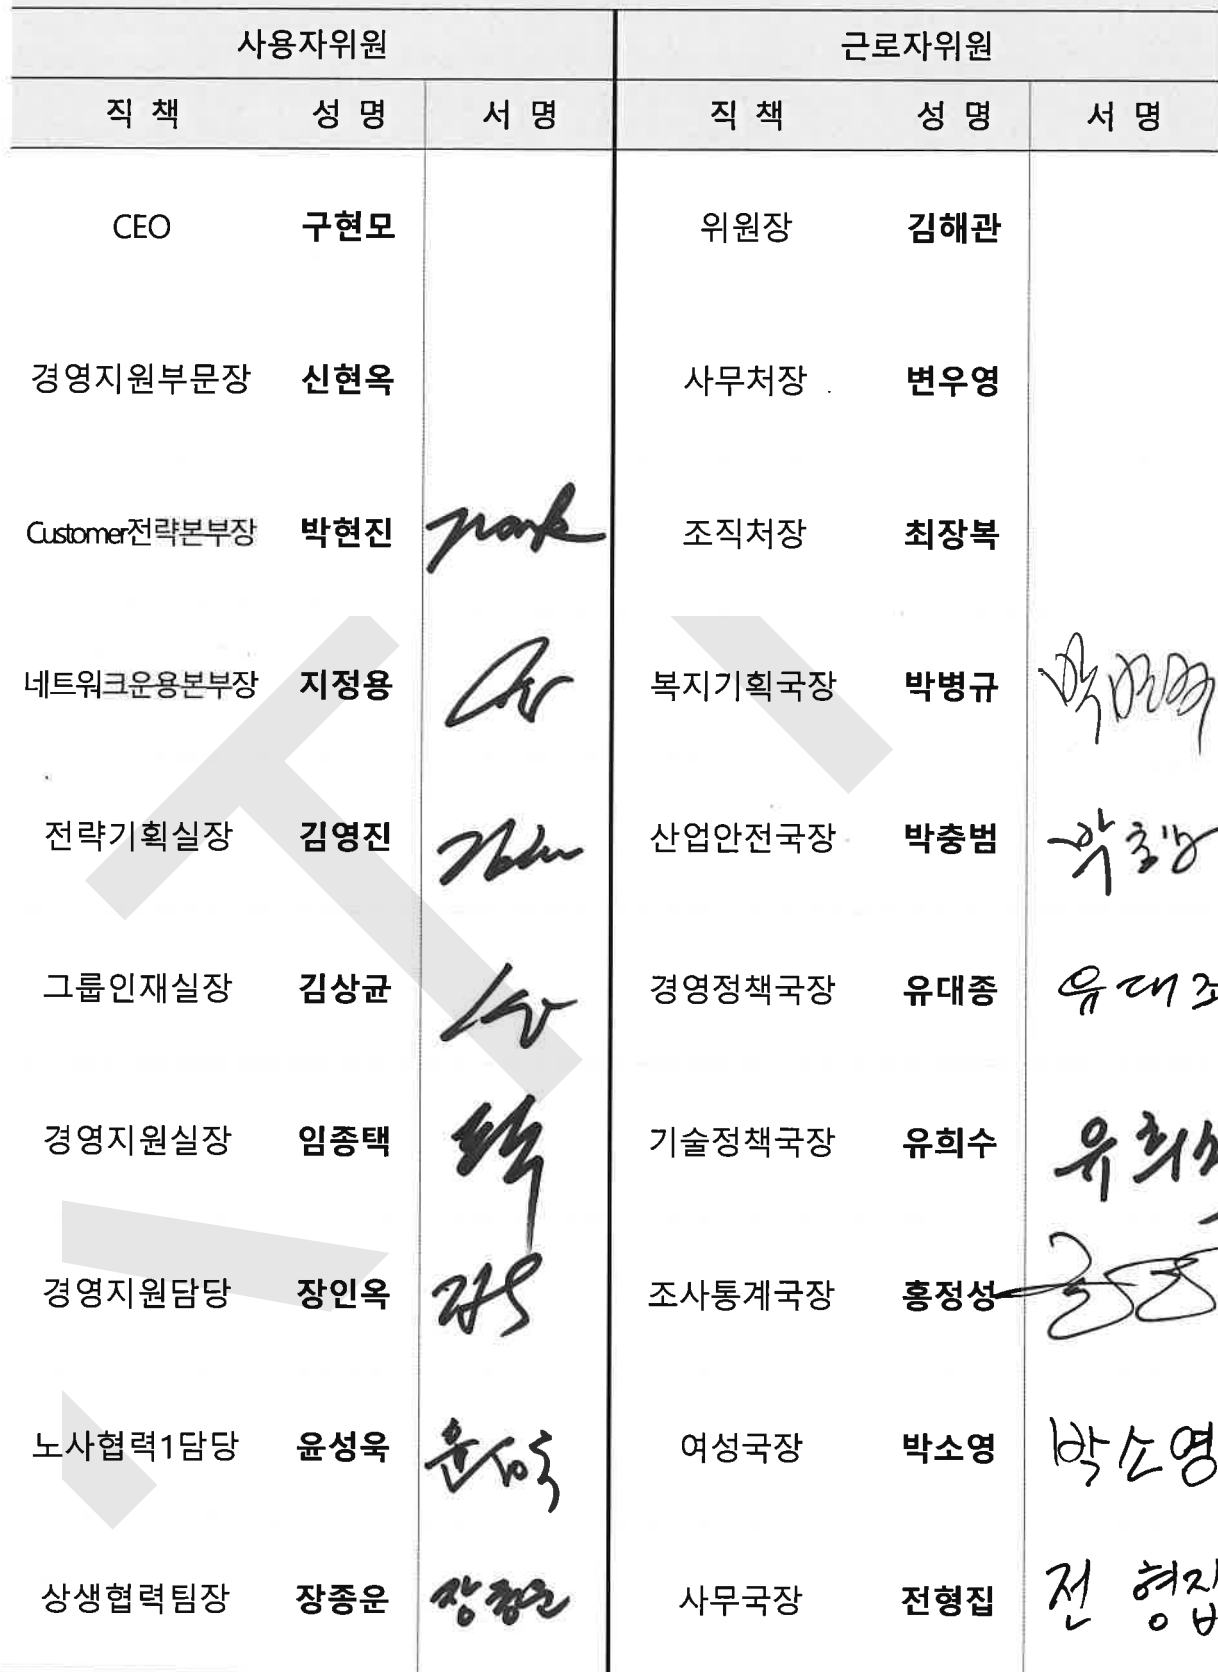 사용자위원 근로자위원
직 책 성 명 서 명 직 책 성 명 서 명
CEO 구현모 위원장 김해관
경영지원부문장 신현옥 사무처장 변우영
Customer전략본부장 박현진 park 조직처장 최장복
네트워크운용본부장 지정용 복지기획국장 박병규 박병규
전략기획실장 김영진 산업안전국장 박충범 박충범
그룹인재실장 김상균 경영정책국장 유대종 유대조
경영지원실장 임종택 기술정책국장 유희수 유희수
경영지원담당 장인옥 조사통계국장 홍정성
노사협력1담당 윤성욱 윤성욱 여성국장 박소영 박소영
상생협력팀장 장종운 장종운 사무국장 전형집 전 형집